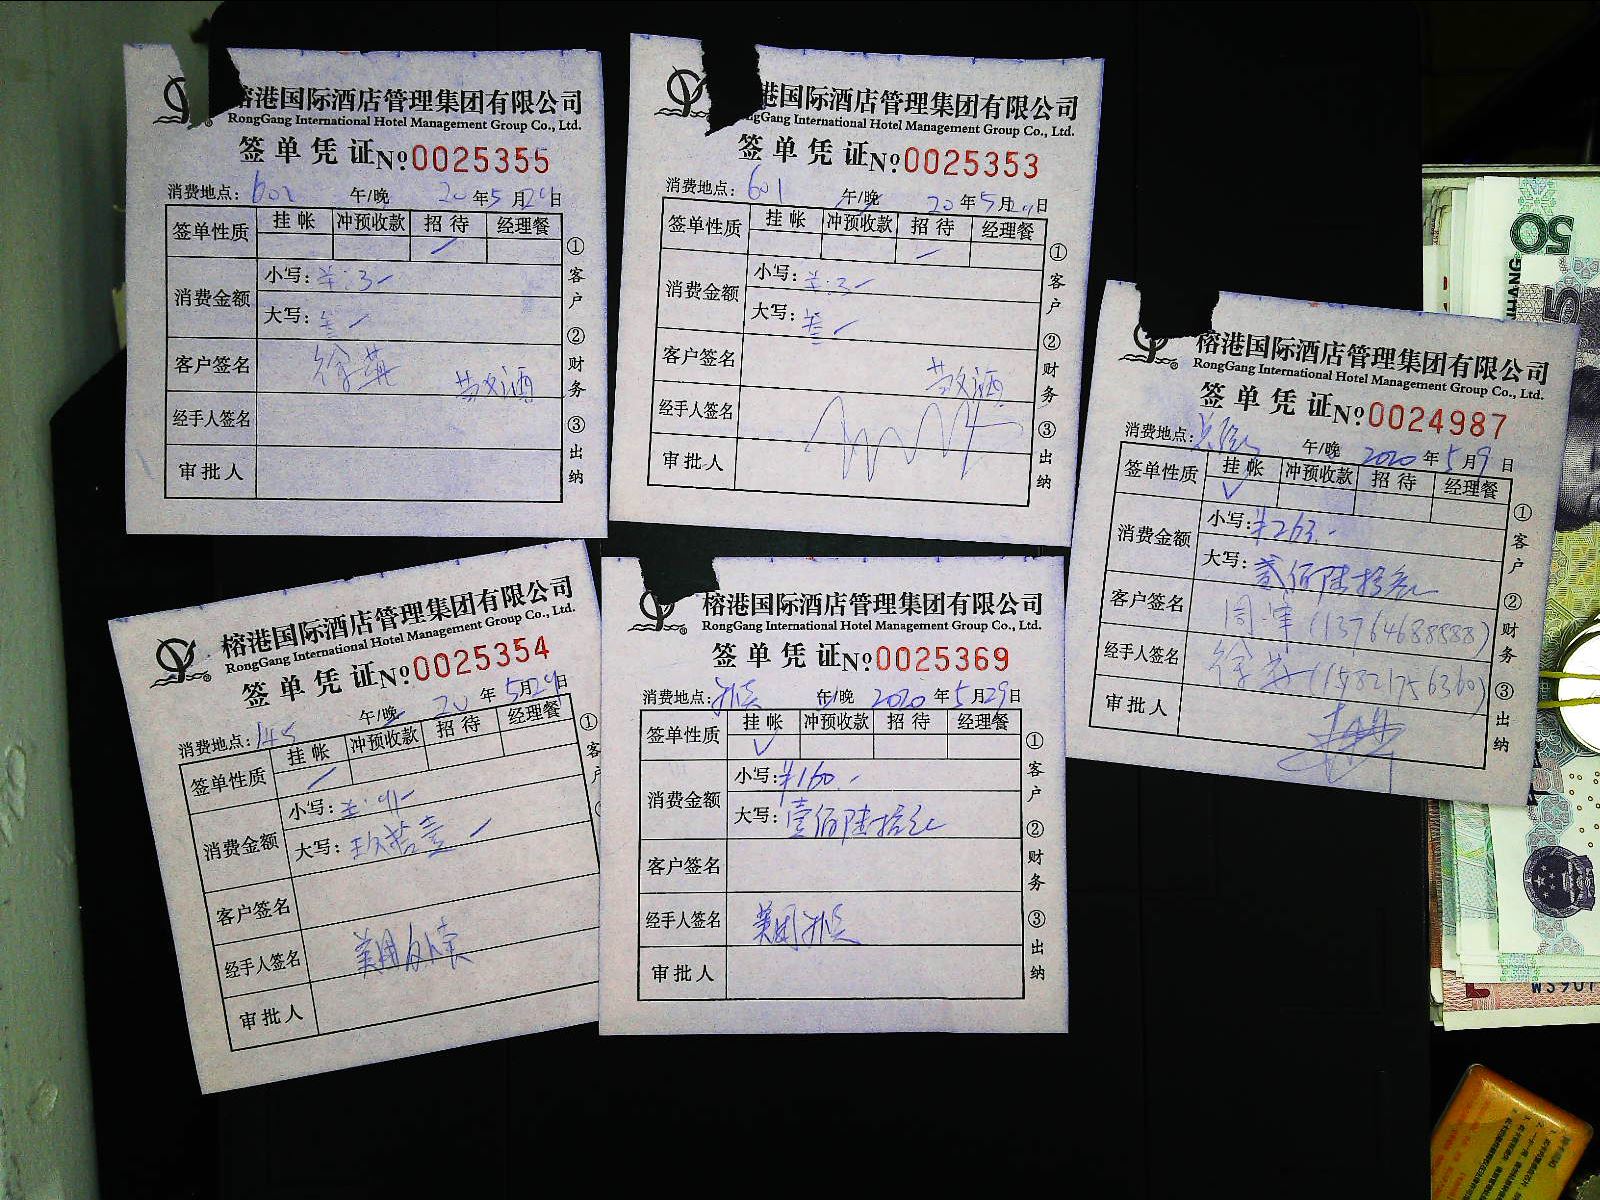 榕港国际酒店管理集团有限公司
RongGang International Hotel Management Group Co., Ltd.
签单凭证 No.0025355
消费地点: 601 午/晚 20年5月29日
签单性质 挂帐 冲预收款 招待 经理餐
消费金额 小写: ¥:3-
大写: 叁
客户签名 徐英 敬酒
经手人签名
审批人
①客户 ②财务 ③出纳
港国际酒店管理集团有限公司
ngGang International Hotel Management Group Co., Ltd.
签单凭证 No.0025353
消费地点: 601 午/晚 20年5月29日
签单性质 挂帐 冲预收款 招待 经理餐
消费金额 小写: ¥:3-
大写: 叁
客户签名 敬酒
经手人签名
审批人
①客户 ②财务 ③出纳
榕港国际酒店管理集团有限公司
RongGang International Hotel Management Group Co., Ltd.
签单凭证 No.0024987
消费地点: 午/晚 2020年5月9日
签单性质 挂帐 冲预收款 招待 经理餐
消费金额 小写: ¥263.-
大写: 贰佰陆拾叁元
客户签名 周军(13764688888)
经手人签名 徐英(15821756360)
审批人
①客户 ②财务 ③出纳
榕港国际酒店管理集团有限公司
RongGang International Hotel Management Group Co., Ltd.
签单凭证 No.0025354
消费地点: 145 午/晚 20年5月29日
签单性质 挂帐 冲预收款 招待 经理餐
消费金额 小写: ¥:91-
大写: 玖拾壹
客户签名
经手人签名 美团
审批人
①客户
榕港国际酒店管理集团有限公司
RongGang International Hotel Management Group Co., Ltd.
签单凭证 No.0025369
消费地点: 午/晚 2020年5月29日
签单性质 挂帐 冲预收款 招待 经理餐
消费金额 小写: ¥160.-
大写: 壹佰陆拾元
客户签名
经手人签名 美团
审批人
①客户 ②财务 ③出纳
50
5